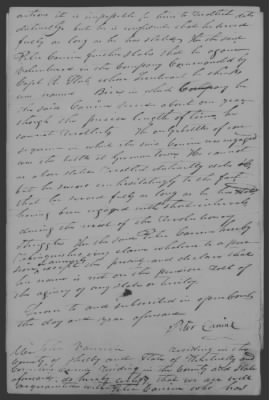 actions it is impossible for him to recollect date
distinctly but he is confident that he served
fully as long as he has stated. He the said
Peter Canine further states that he again
volunteered in the Company Commanded by
Capt. B. whose Lieutenant he thinks
was named in which Company he
the said Canine served about one year
though the precise length of time, he
cannot recollect. The only battle of con
sequence in which the said Canine was engaged
was the battle of Germantown. He can not
as above stated recollect distinctly dates &c
but he swears unhesitatingly to the fact
that he served fully as long as he has stated
having been engaged with short intervals
during the most of the Revolutionary
struggle. He the said Peter Canine hereby
relinquishes every claim whatever to a pen
sion or annuity except the present and declares that
his name is not on the pension roll of
the agency of any state or territory.
Sworn to and subscribed in open Court
the day and year aforesaid
Peter Canine
We John residing in the
County of Shelby and State of Kentucky and
residing in the County and State
aforesaid, do hereby certify that we are well
acquainted with Peter Canine who has